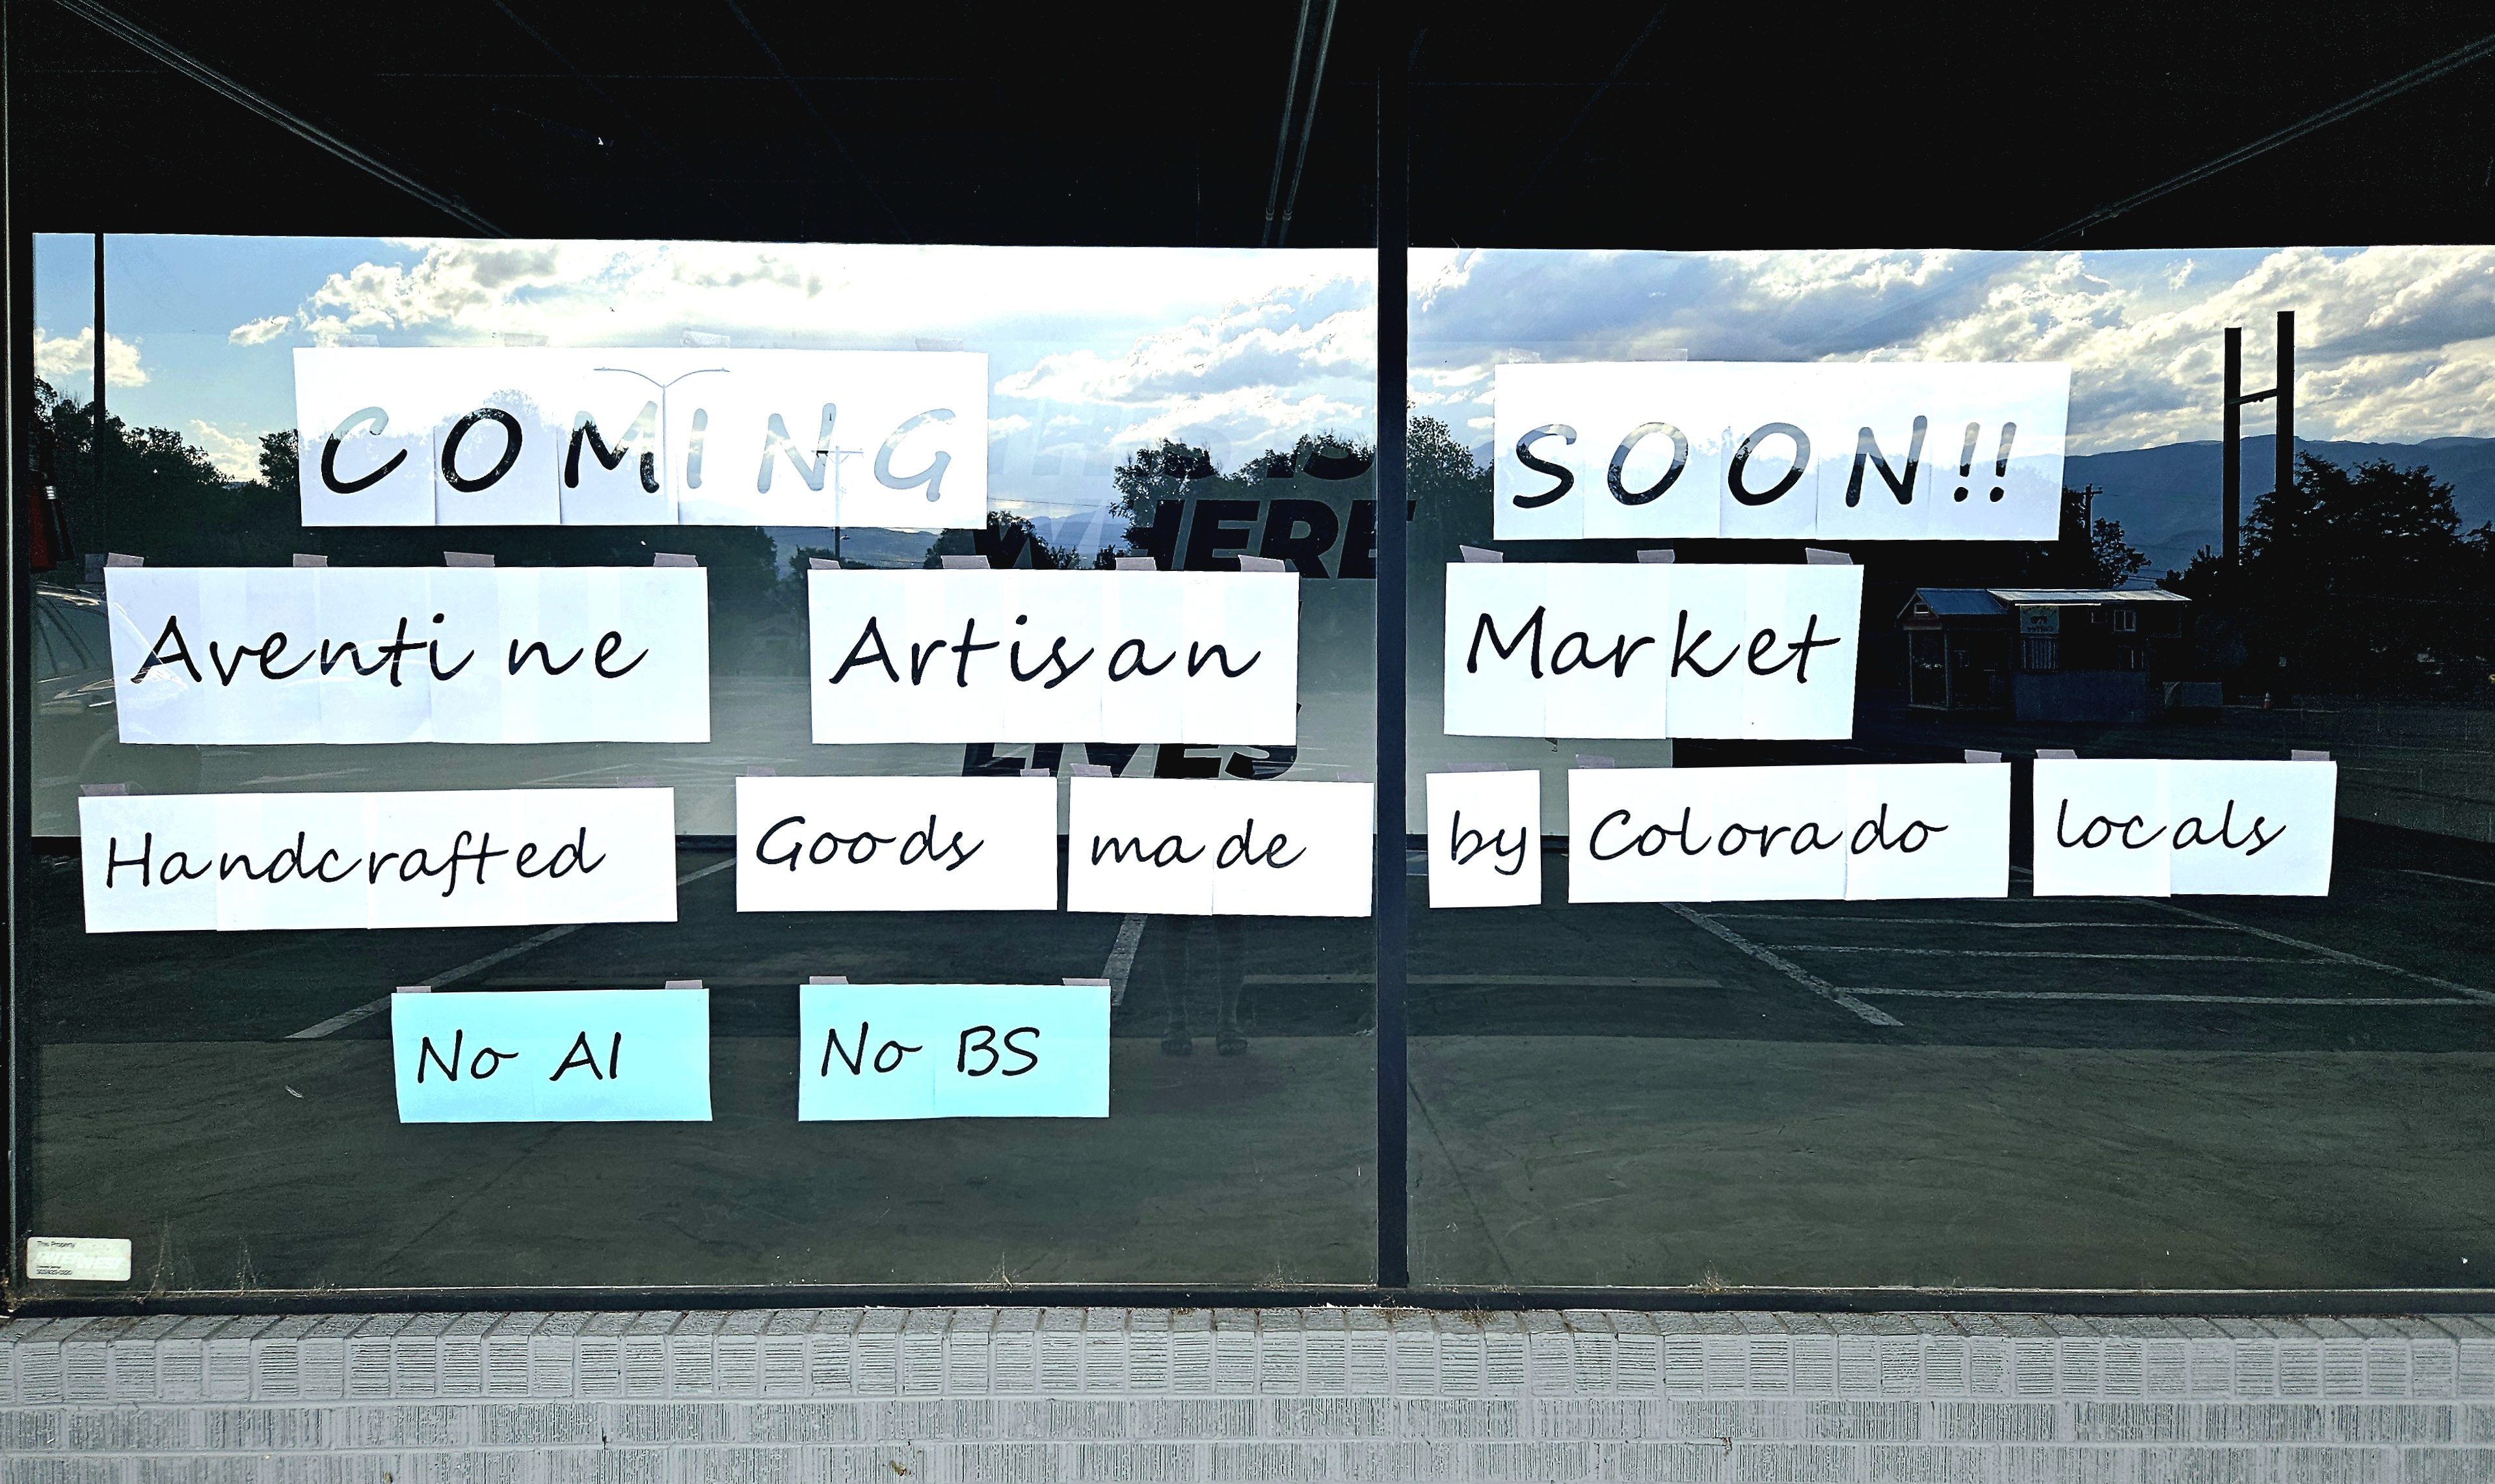 COMING SOON!!
Aventine Artisan Market
Handcrafted Goods made by Colorado locals
No AI No BS
WHERE
LIVES
This Property